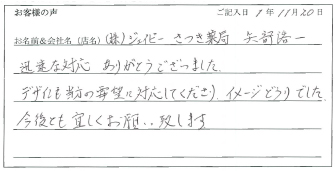 お客様の声
ご記入日 1年11月20日
お名前&会社名(店名) (株)ジェイビー さつき薬局 矢部浩一
迅速な対応 ありがとうございました
デザインも当方の要望に対応してくださり、イメージどうりでした。
今後とも宜しくお願い致します